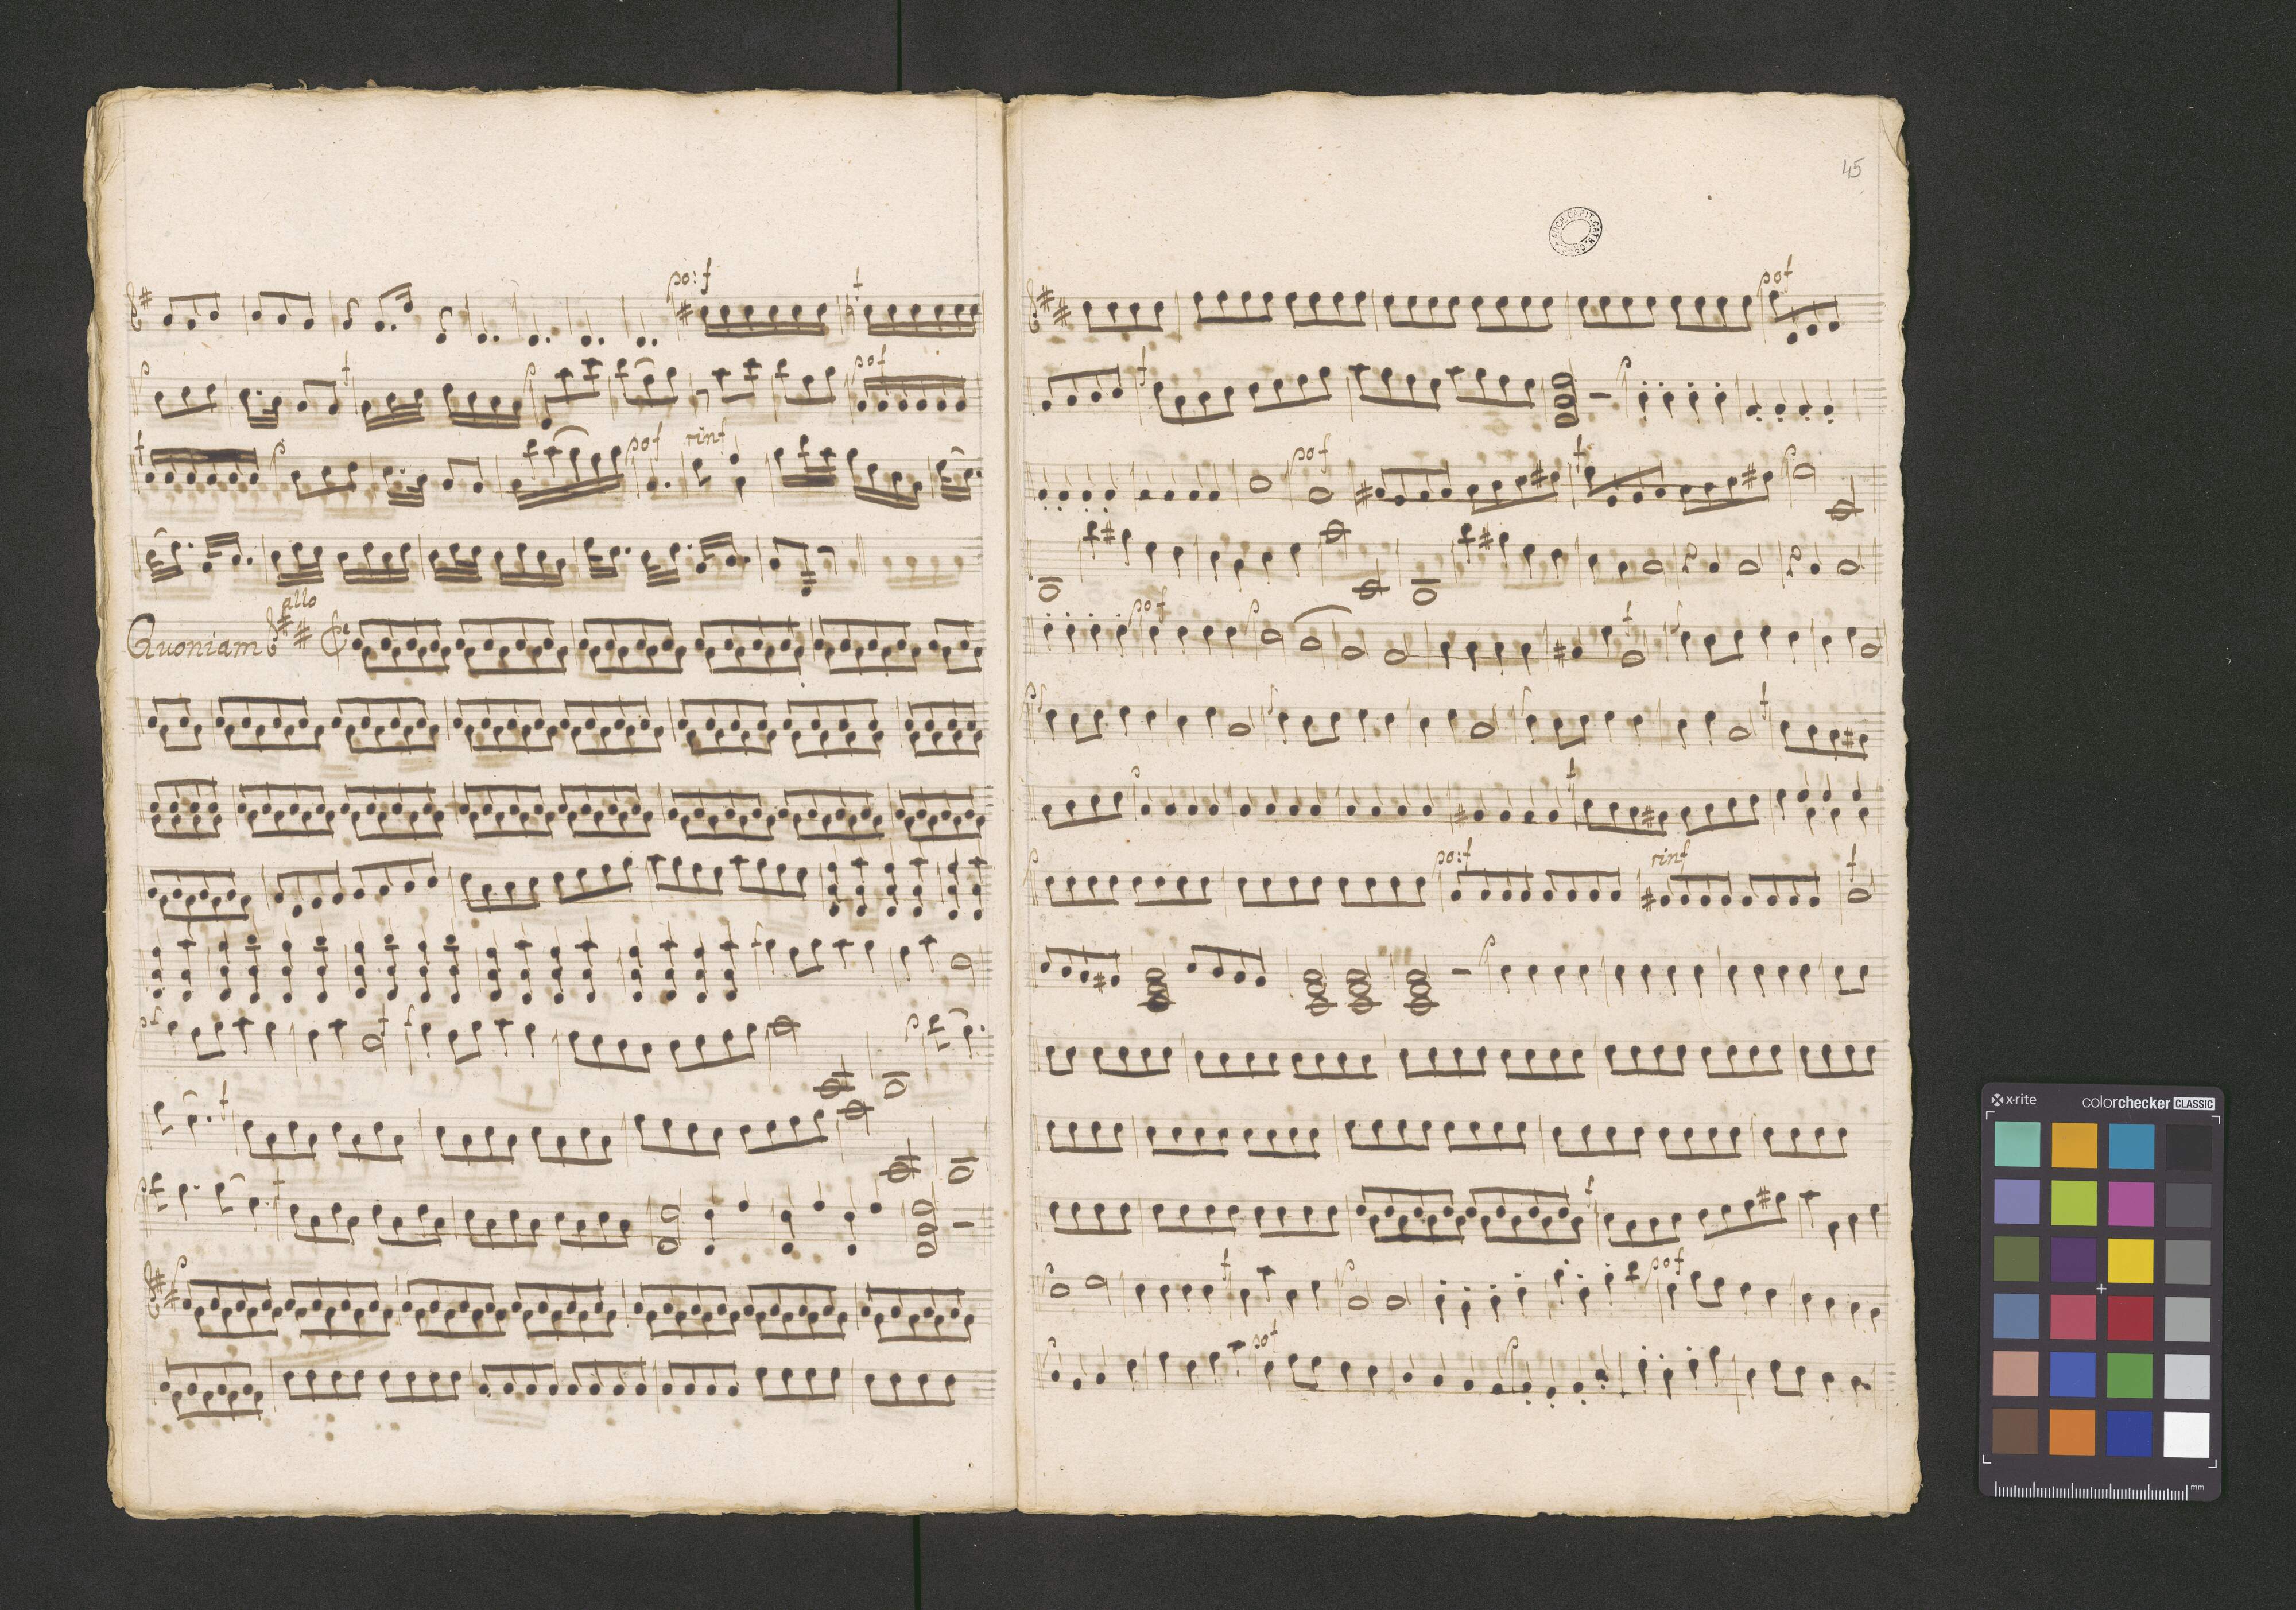 po: f
f
p
f
p
pof
f
p
pof
rinf
allo
Quoniam
f
pf
f
p
f
p
f
p
45
pof
f
p
pof
f
p
pof
p
f
p
f
p
f
p
po: f
rinf
f
p
f
p
f
p
pof
p
pof
p
x-rite
colorchecker CLASSIC
mm